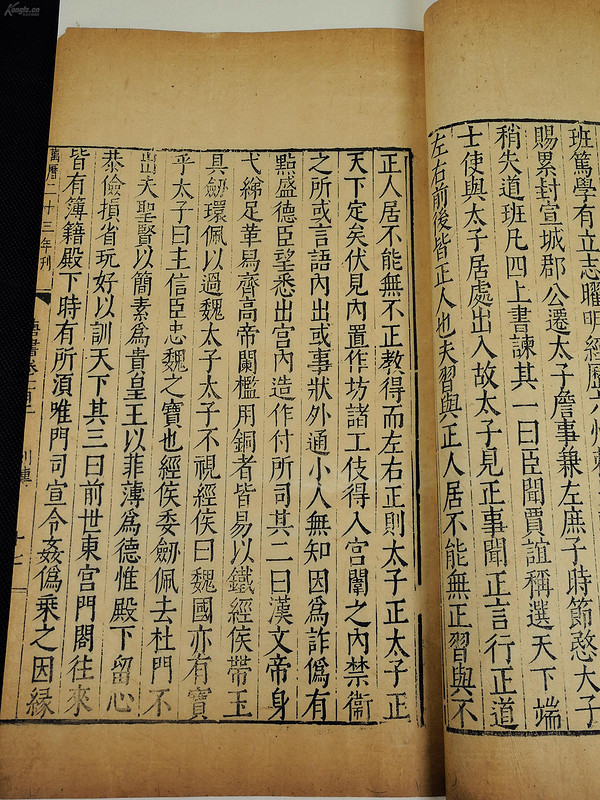 班篤學有立志曜明經歷六州
賜累封宣城郡公遷太子詹事兼左庶子時節愍太子
稍失道班凡四上書諫其一曰臣聞賈誼稱選天下端
士使與太子居處出入故太子見正事聞正言行正道
左右前後皆正人也夫習與正人居不能無正習與不
正人居不能無不正教得而左右正則太子正太子正
天下定矣伏見內置作坊諸工伎得入宮闈之內禁衞
之所或言語內出或事狀外通小人無知因為詐僞有
點盛德臣望悉出宮內造作付所司其二曰漢文帝身
弋綈足革舄齊高帝闌檻用銅者皆易以鐵經侯帶玉
具劒環佩以過魏太子太子不視經侯曰魏國亦有寶
乎太子曰主信臣忠魏之寶也經侯委劒佩去杜門不
出夫聖賢以簡素爲貴皇王以菲薄爲德惟殿下留心
恭儉損省玩好以訓天下其三曰前世東宮門閤往來
皆有簿籍殿下時有所湏唯門司宣令姦僞乗之因緣
萬曆二十三年刊
唐書卷一百二
列傳
Kongfz.cn